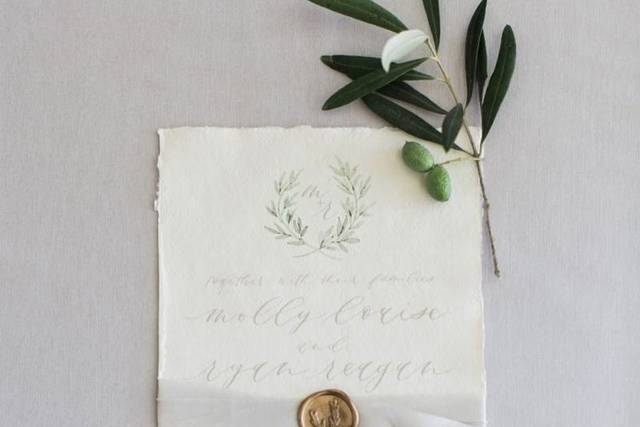 m
+
r
together with their families
molly louise
and
ryan reagan